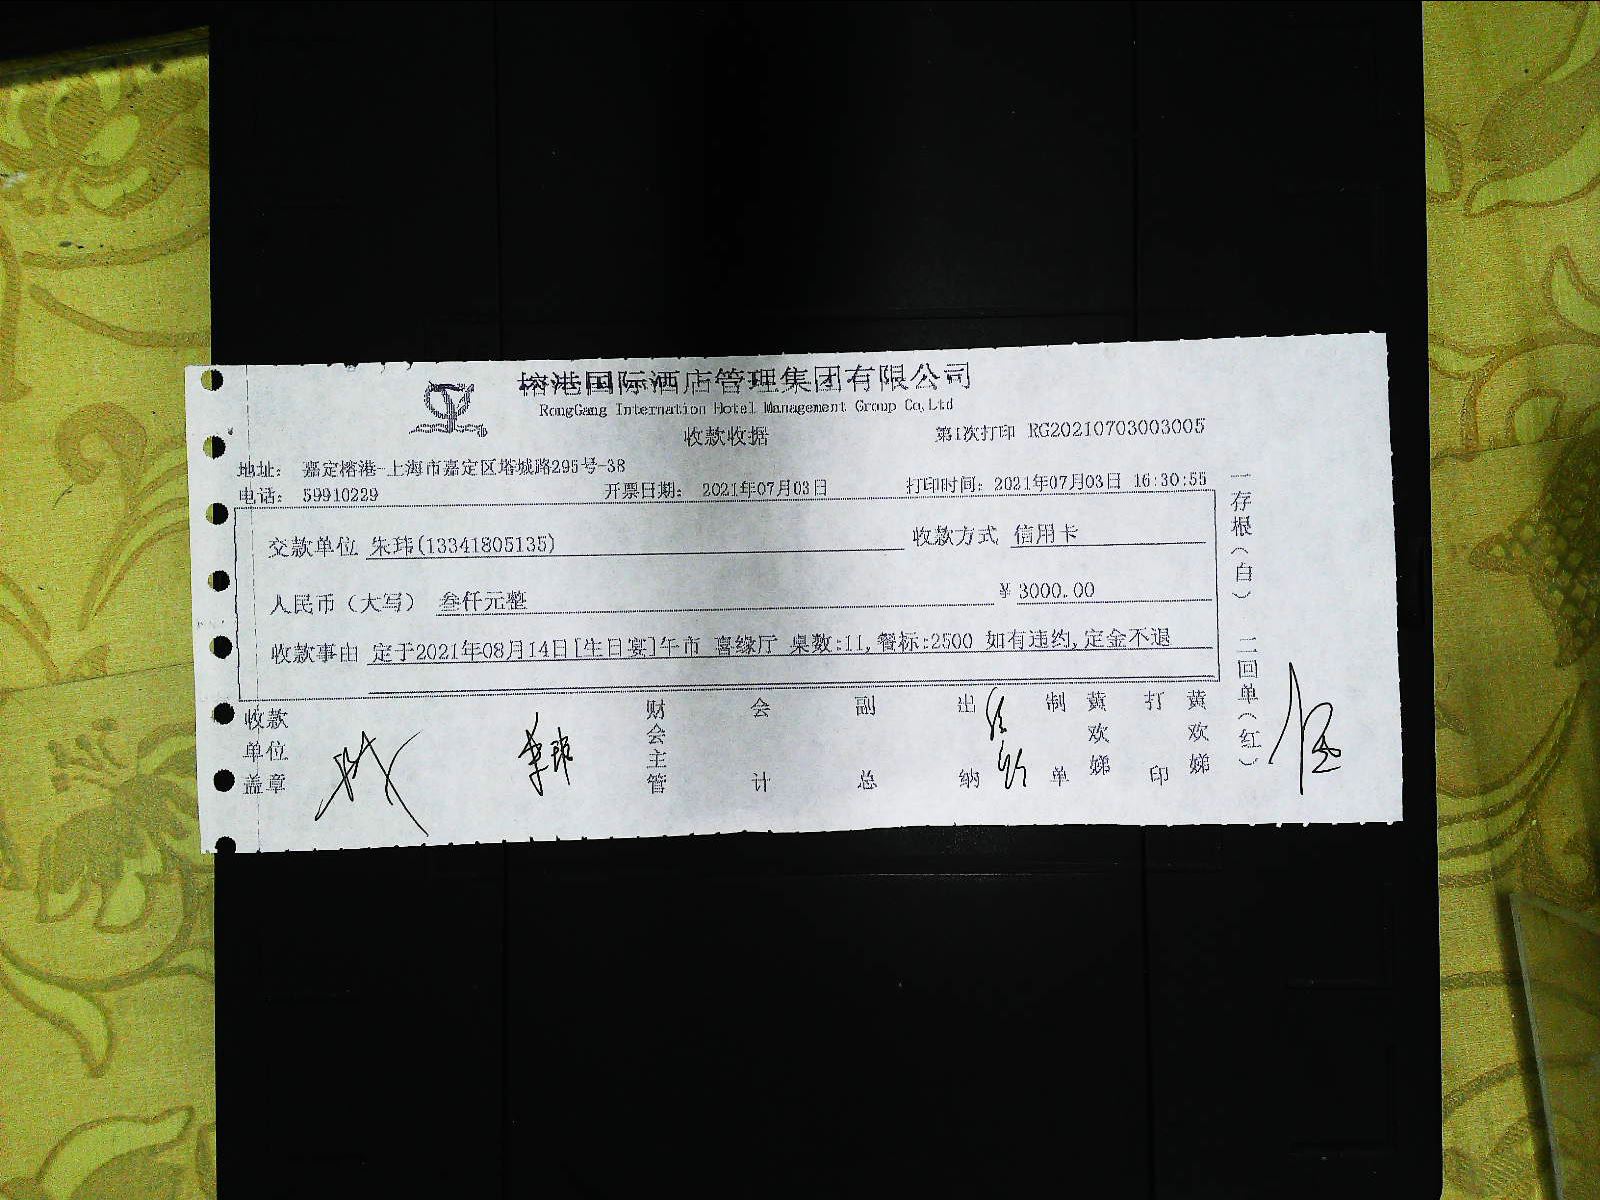 榕港国际酒店管理集团有限公司
RongGang Internation Hotel Management Group Co,Ltd
收款收据
第1次打印 RG20210703003005
地址： 嘉定榕港-上海市嘉定区塔城路295号-38
电话： 59910229 开票日期： 2021年07月03日 打印时间：2021年07月03日 16:30:55
交款单位 朱玮(13341805135) 收款方式 信用卡
人民币（大写） 叁仟元整 ¥ 3000.00
收款事由 定于2021年08月14日[生日宴]午市 喜缘厅 桌数:11,餐标:2500 如有违约,定金不退
收款单位盖章
财会主管
会计
副总
出纳
制单 黄欢娣
打印 黄欢娣
一存根（白） 二回单（红）